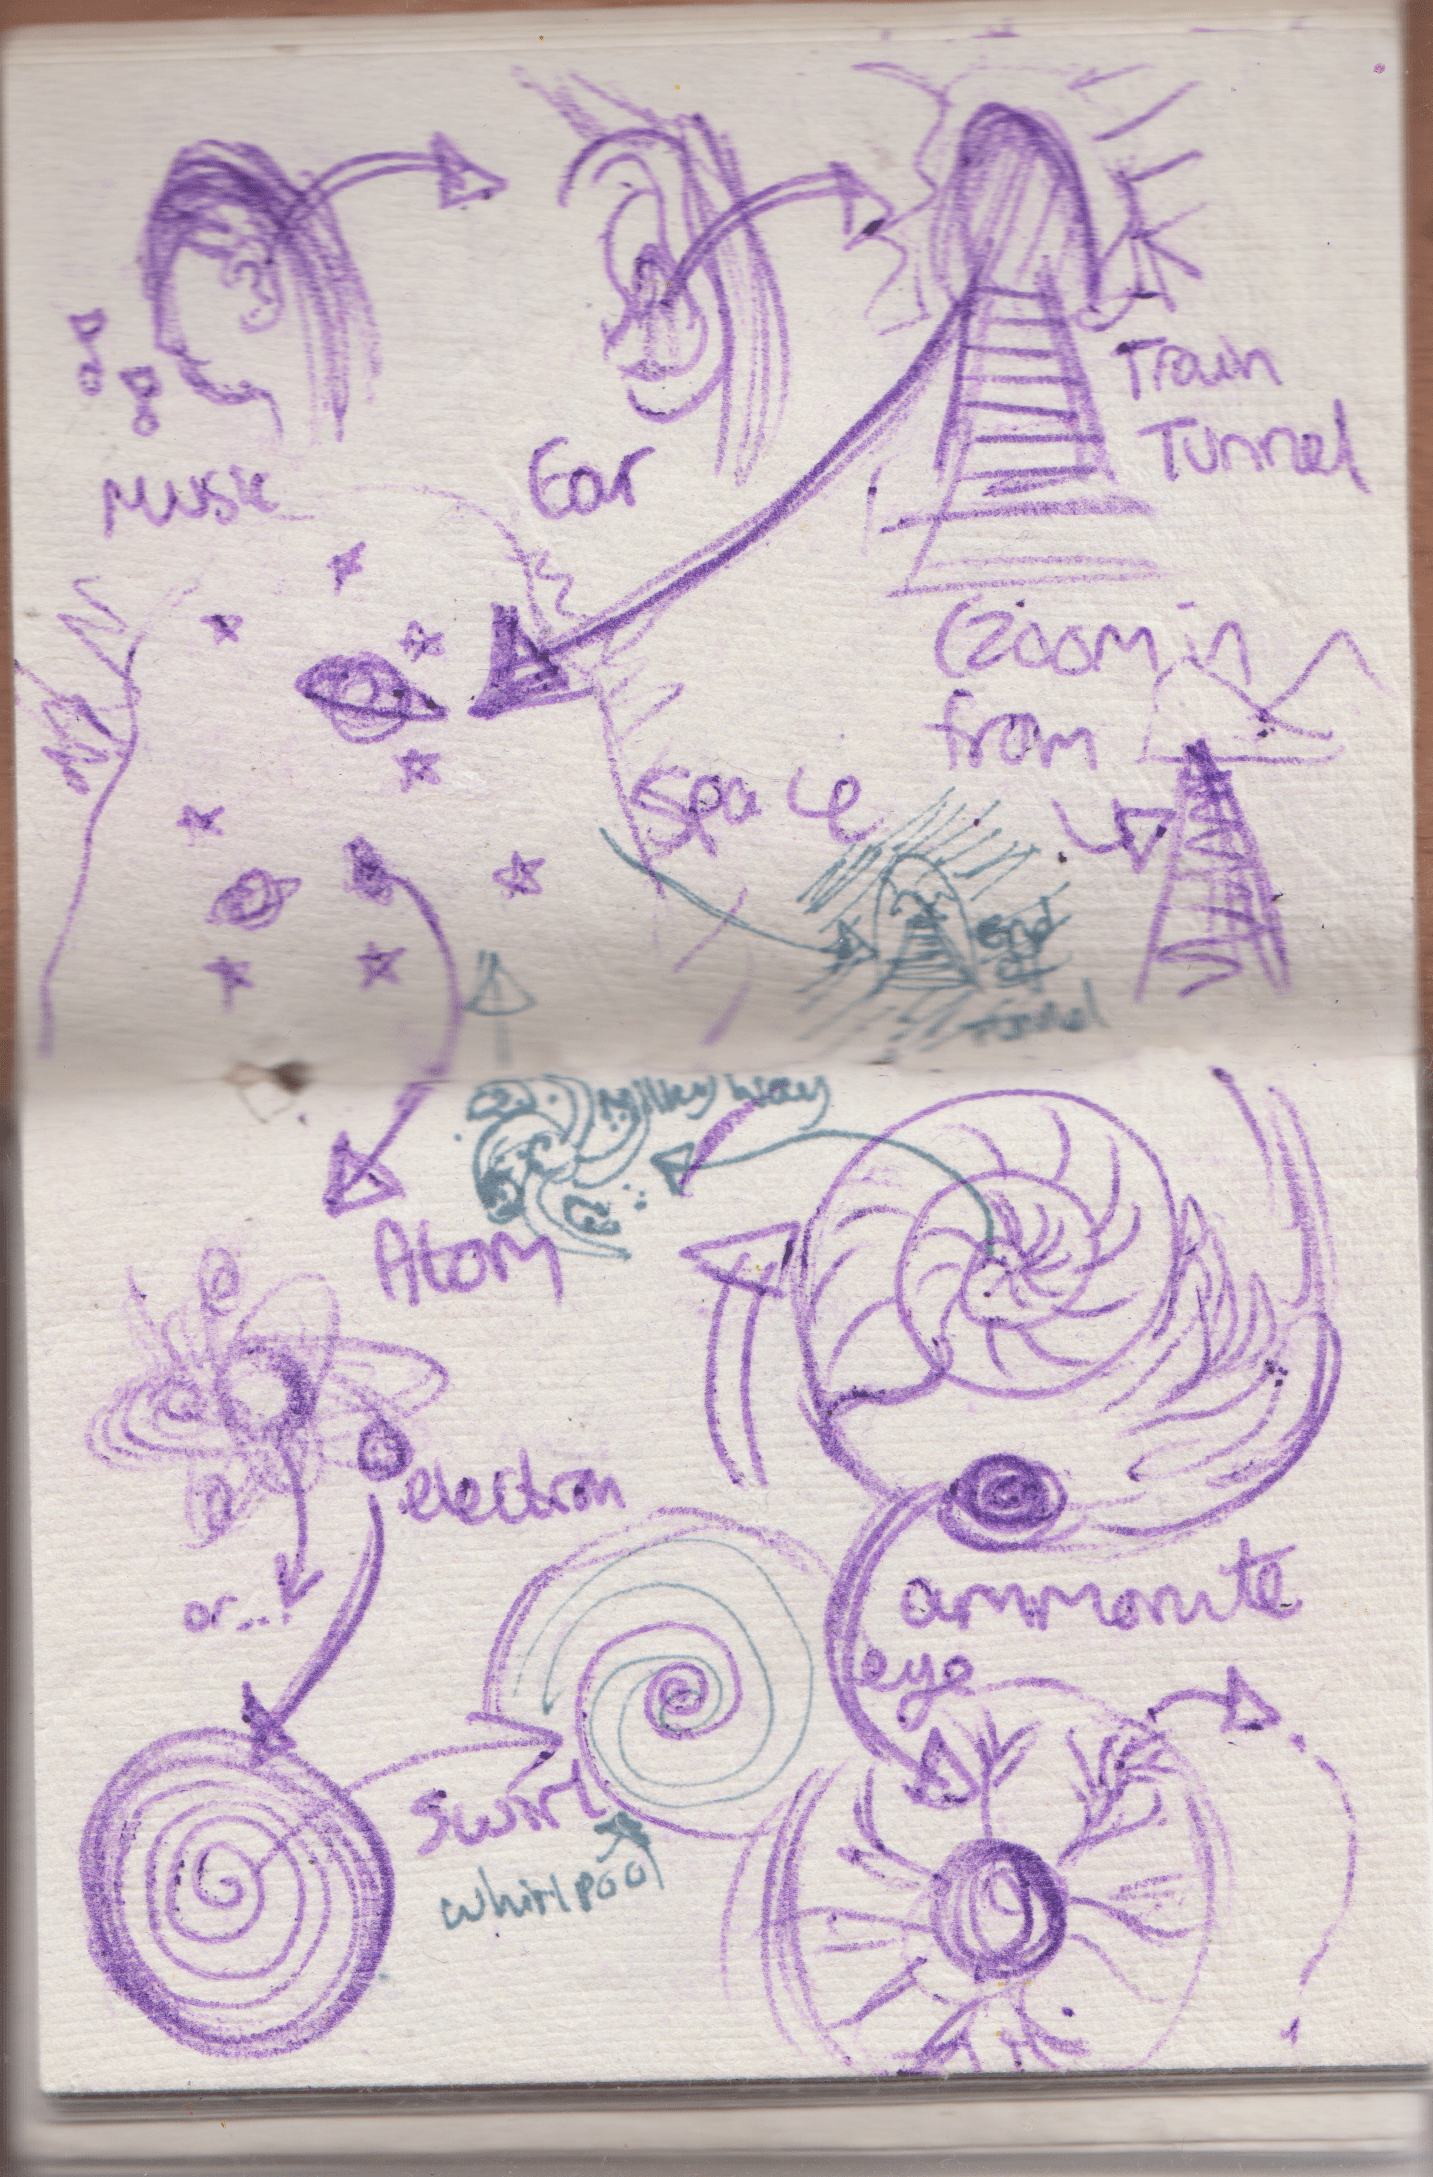 Music
Ear
Train
Tunnel
(zoom in
from
Space
end
of
tunnel
Milky Way
Atom
electron
or...
ammonite
eye
swirl
whirlpool